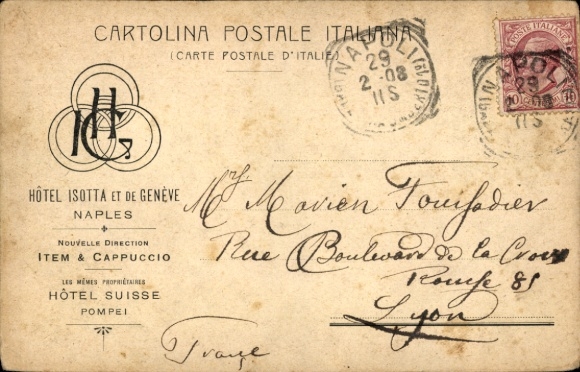 CARTOLINA POSTALE ITALIANA
(CARTE POSTALE D'ITALIE)
NAPOLI
29
2-08
11S
POSTE ITALIANE
10
NAPOLI
29
2-08
11S
HÔTEL ISOTTA ET DE GENÈVE
NAPLES
NOUVELLE DIRECTION
ITEM & CAPPUCCIO
LES MÊMES PROPRIÉTAIRES
HÔTEL SUISSE
POMPEI
Mr. Marien
Rue Boulevard de la Croix
Rousse 81
Lyon
France